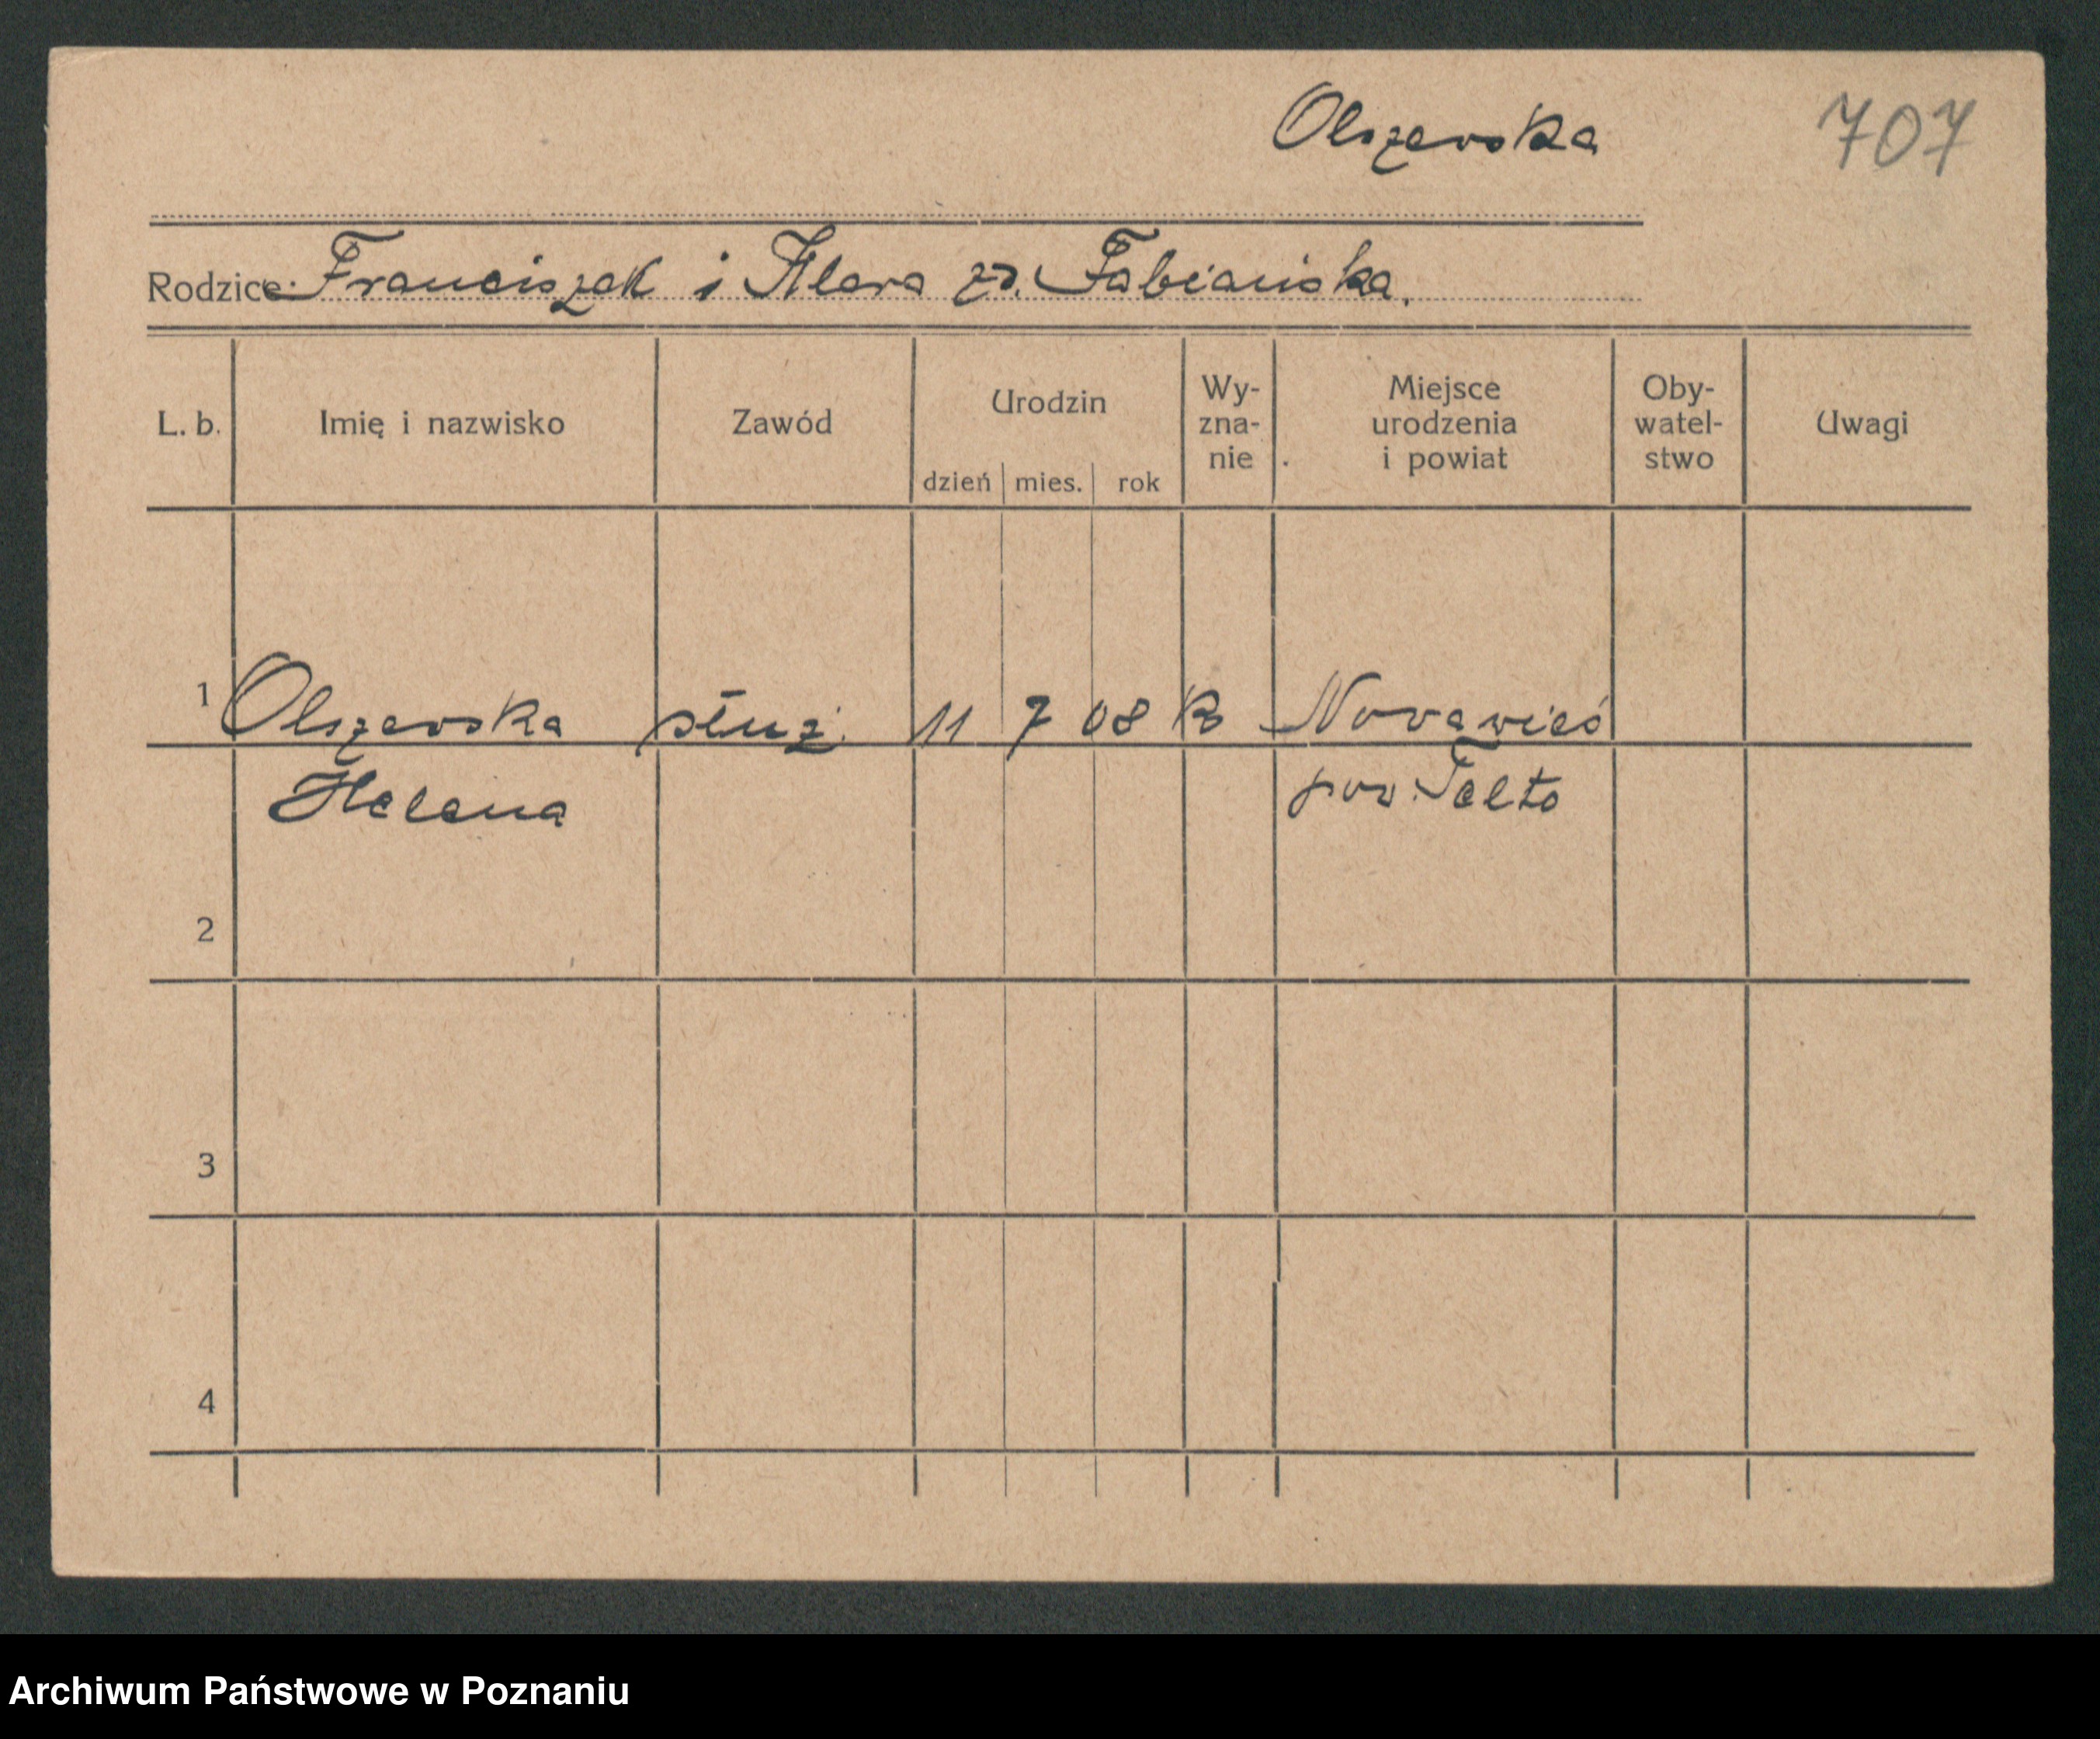 Olszewska 707
Rodzice: Franciszek i Klara zd. Fabiańska.
L. b. Imię i nazwisko Zawód Urodzin dzień mies. rok Wy-zna-nie Miejsce urodzenia i powiat Oby-watel-stwo Uwagi
1 Olszewska służ. 11 7 08 K Nowawieś
Helena pow. Telto
2
3
4
Archiwum Państwowe w Poznaniu